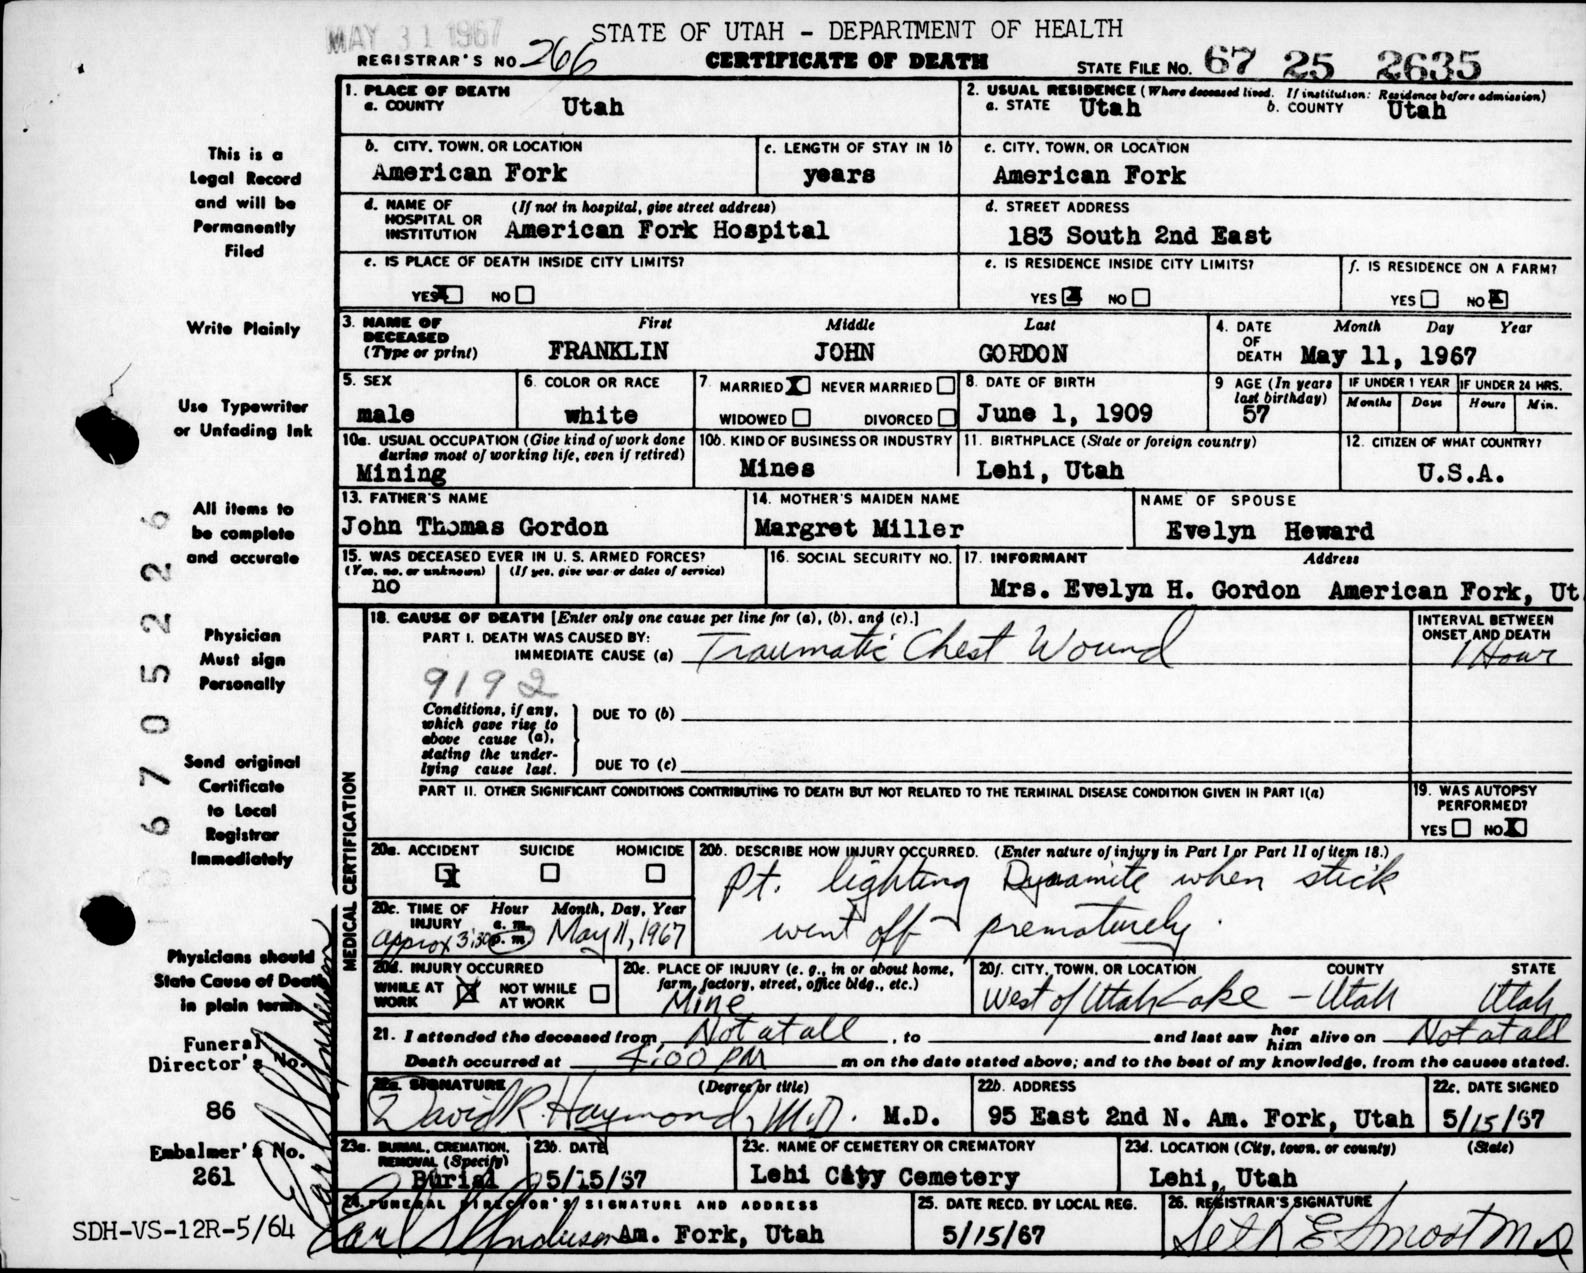 MAY 31 1967
STATE OF UTAH - DEPARTMENT OF HEALTH
REGISTRAR'S NO 266
CERTIFICATE OF DEATH
STATE FILE NO. 67 25 2635
This is a
Legal Record
and will be
Permanently
Filed
Write Plainly
Use Typewriter
or Unfading Ink
All items to
be complete
and accurate
Physician
Must sign
Personally
Send original
Certificate
to Local
Registrar
Immediately
Physicians should
State Cause of Death
in plain terms
Funeral
Director's No.
86
Embalmer's No.
261
SDH-VS-12R-5/64
06705226
1. PLACE OF DEATH
a. COUNTY Utah
2. USUAL RESIDENCE (Where deceased lived. If institution: Residence before admission)
a. STATE Utah b. COUNTY Utah
b. CITY, TOWN, OR LOCATION
American Fork
c. LENGTH OF STAY IN 1b
years
c. CITY, TOWN, OR LOCATION
American Fork
d. NAME OF HOSPITAL OR INSTITUTION (If not in hospital, give street address)
American Fork Hospital
d. STREET ADDRESS
183 South 2nd East
e. IS PLACE OF DEATH INSIDE CITY LIMITS?
YES X NO
e. IS RESIDENCE INSIDE CITY LIMITS?
YES X NO
f. IS RESIDENCE ON A FARM?
YES NO X
3. NAME OF DECEASED (Type or print)
First Middle Last
FRANKLIN JOHN GORDON
4. DATE OF DEATH Month Day Year
May 11, 1967
5. SEX
male
6. COLOR OR RACE
white
7. MARRIED X NEVER MARRIED
WIDOWED DIVORCED
8. DATE OF BIRTH
June 1, 1909
9 AGE (In years last birthday)
57
IF UNDER 1 YEAR
Months Days
IF UNDER 24 HRS.
Hours Min.
10a. USUAL OCCUPATION (Give kind of work done during most of working life, even if retired)
Mining
10b. KIND OF BUSINESS OR INDUSTRY
Mines
11. BIRTHPLACE (State or foreign country)
Lehi, Utah
12. CITIZEN OF WHAT COUNTRY?
U.S.A.
13. FATHER'S NAME
John Thomas Gordon
14. MOTHER'S MAIDEN NAME
Margret Miller
NAME OF SPOUSE
Evelyn Heward
15. WAS DECEASED EVER IN U. S. ARMED FORCES?
(Yes, no, or unknown) (If yes, give war or dates of service)
no
16. SOCIAL SECURITY NO.
17. INFORMANT Address
Mrs. Evelyn H. Gordon American Fork, Ut
MEDICAL CERTIFICATION
18. CAUSE OF DEATH [Enter only one cause per line for (a), (b), and (c).]
PART I. DEATH WAS CAUSED BY:
IMMEDIATE CAUSE (a) Traumatic Chest Wound
INTERVAL BETWEEN ONSET AND DEATH
1 Hour
9192
Conditions, if any,
which gave rise to
above cause (a),
stating the under-
lying cause last.
DUE TO (b)
DUE TO (c)
PART II. OTHER SIGNIFICANT CONDITIONS CONTRIBUTING TO DEATH BUT NOT RELATED TO THE TERMINAL DISEASE CONDITION GIVEN IN PART I(a)
19. WAS AUTOPSY PERFORMED?
YES NO X
20a. ACCIDENT SUICIDE HOMICIDE
X
20b. DESCRIBE HOW INJURY OCCURRED. (Enter nature of injury in Part I or Part II of item 18.)
Pt. lighting Dynamite when stick
went off prematurely.
20c. TIME OF INJURY Hour Month, Day, Year
a. m.
approx 3:30 p. m. May 11, 1967
20d. INJURY OCCURRED
WHILE AT WORK X NOT WHILE AT WORK
20e. PLACE OF INJURY (e. g., in or about home, farm, factory, street, office bldg., etc.)
Mine
20f. CITY, TOWN, OR LOCATION COUNTY STATE
West of Utah Lake - Utah Utah
21. I attended the deceased from Not at all , to and last saw her him alive on Not at all
Death occurred at 4:00 PM m on the date stated above; and to the best of my knowledge, from the causes stated.
22a. SIGNATURE (Degree or title)
David R. Haymond, M.D. M.D.
22b. ADDRESS
95 East 2nd N. Am. Fork, Utah
22c. DATE SIGNED
5/15/67
23a. BURIAL, CREMATION, REMOVAL (Specify)
Burial
23b. DATE
5/15/67
23c. NAME OF CEMETERY OR CREMATORY
Lehi City Cemetery
23d. LOCATION (City, town, or county) (State)
Lehi, Utah
24. FUNERAL DIRECTOR'S SIGNATURE AND ADDRESS
Earl S Anderson Am. Fork, Utah
25. DATE RECD. BY LOCAL REG.
5/15/67
26. REGISTRAR'S SIGNATURE
Seth E Smoot MD